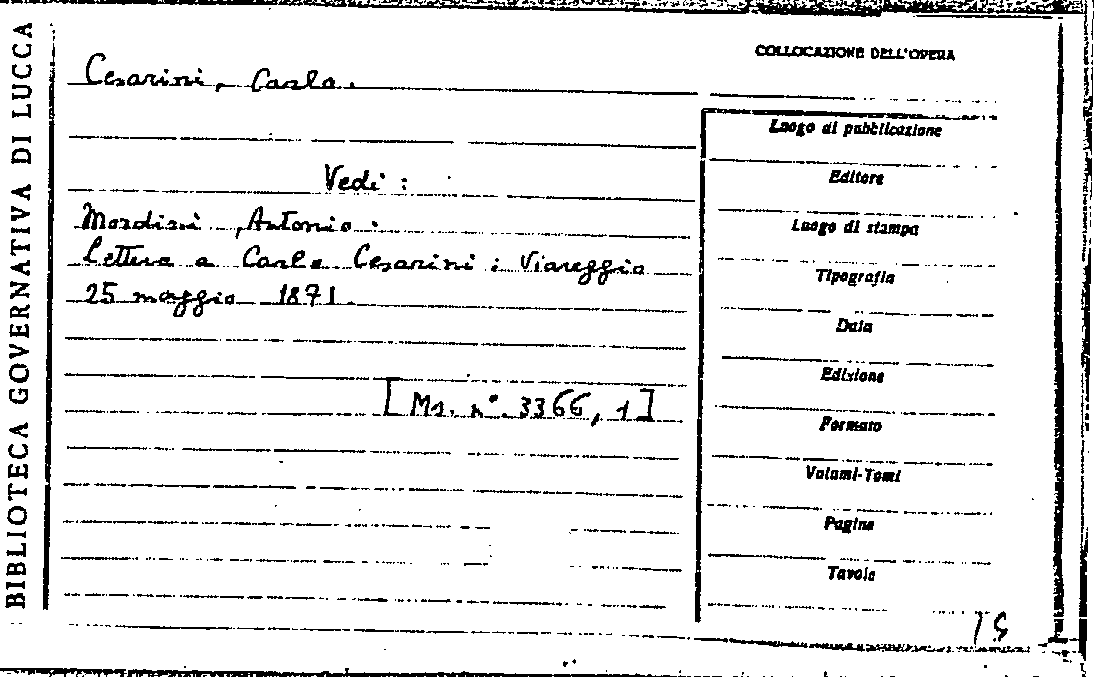 BIBLIOTECA GOVERNATIVA DI LUCCA
COLLOCAZIONE DELL'OPERA
Cesarini, Carlo.
Vedi:
Mordini, Antonio.
Lettera a Carlo Cesarini: Viareggio
25 maggio 1871.
[Ms. n°. 3366, 1]
Luogo di pubblicazione
Editore
Luogo di stampa
Tipografia
Data
Edizione
Formato
Volumi-Tomi
Pagine
Tavole